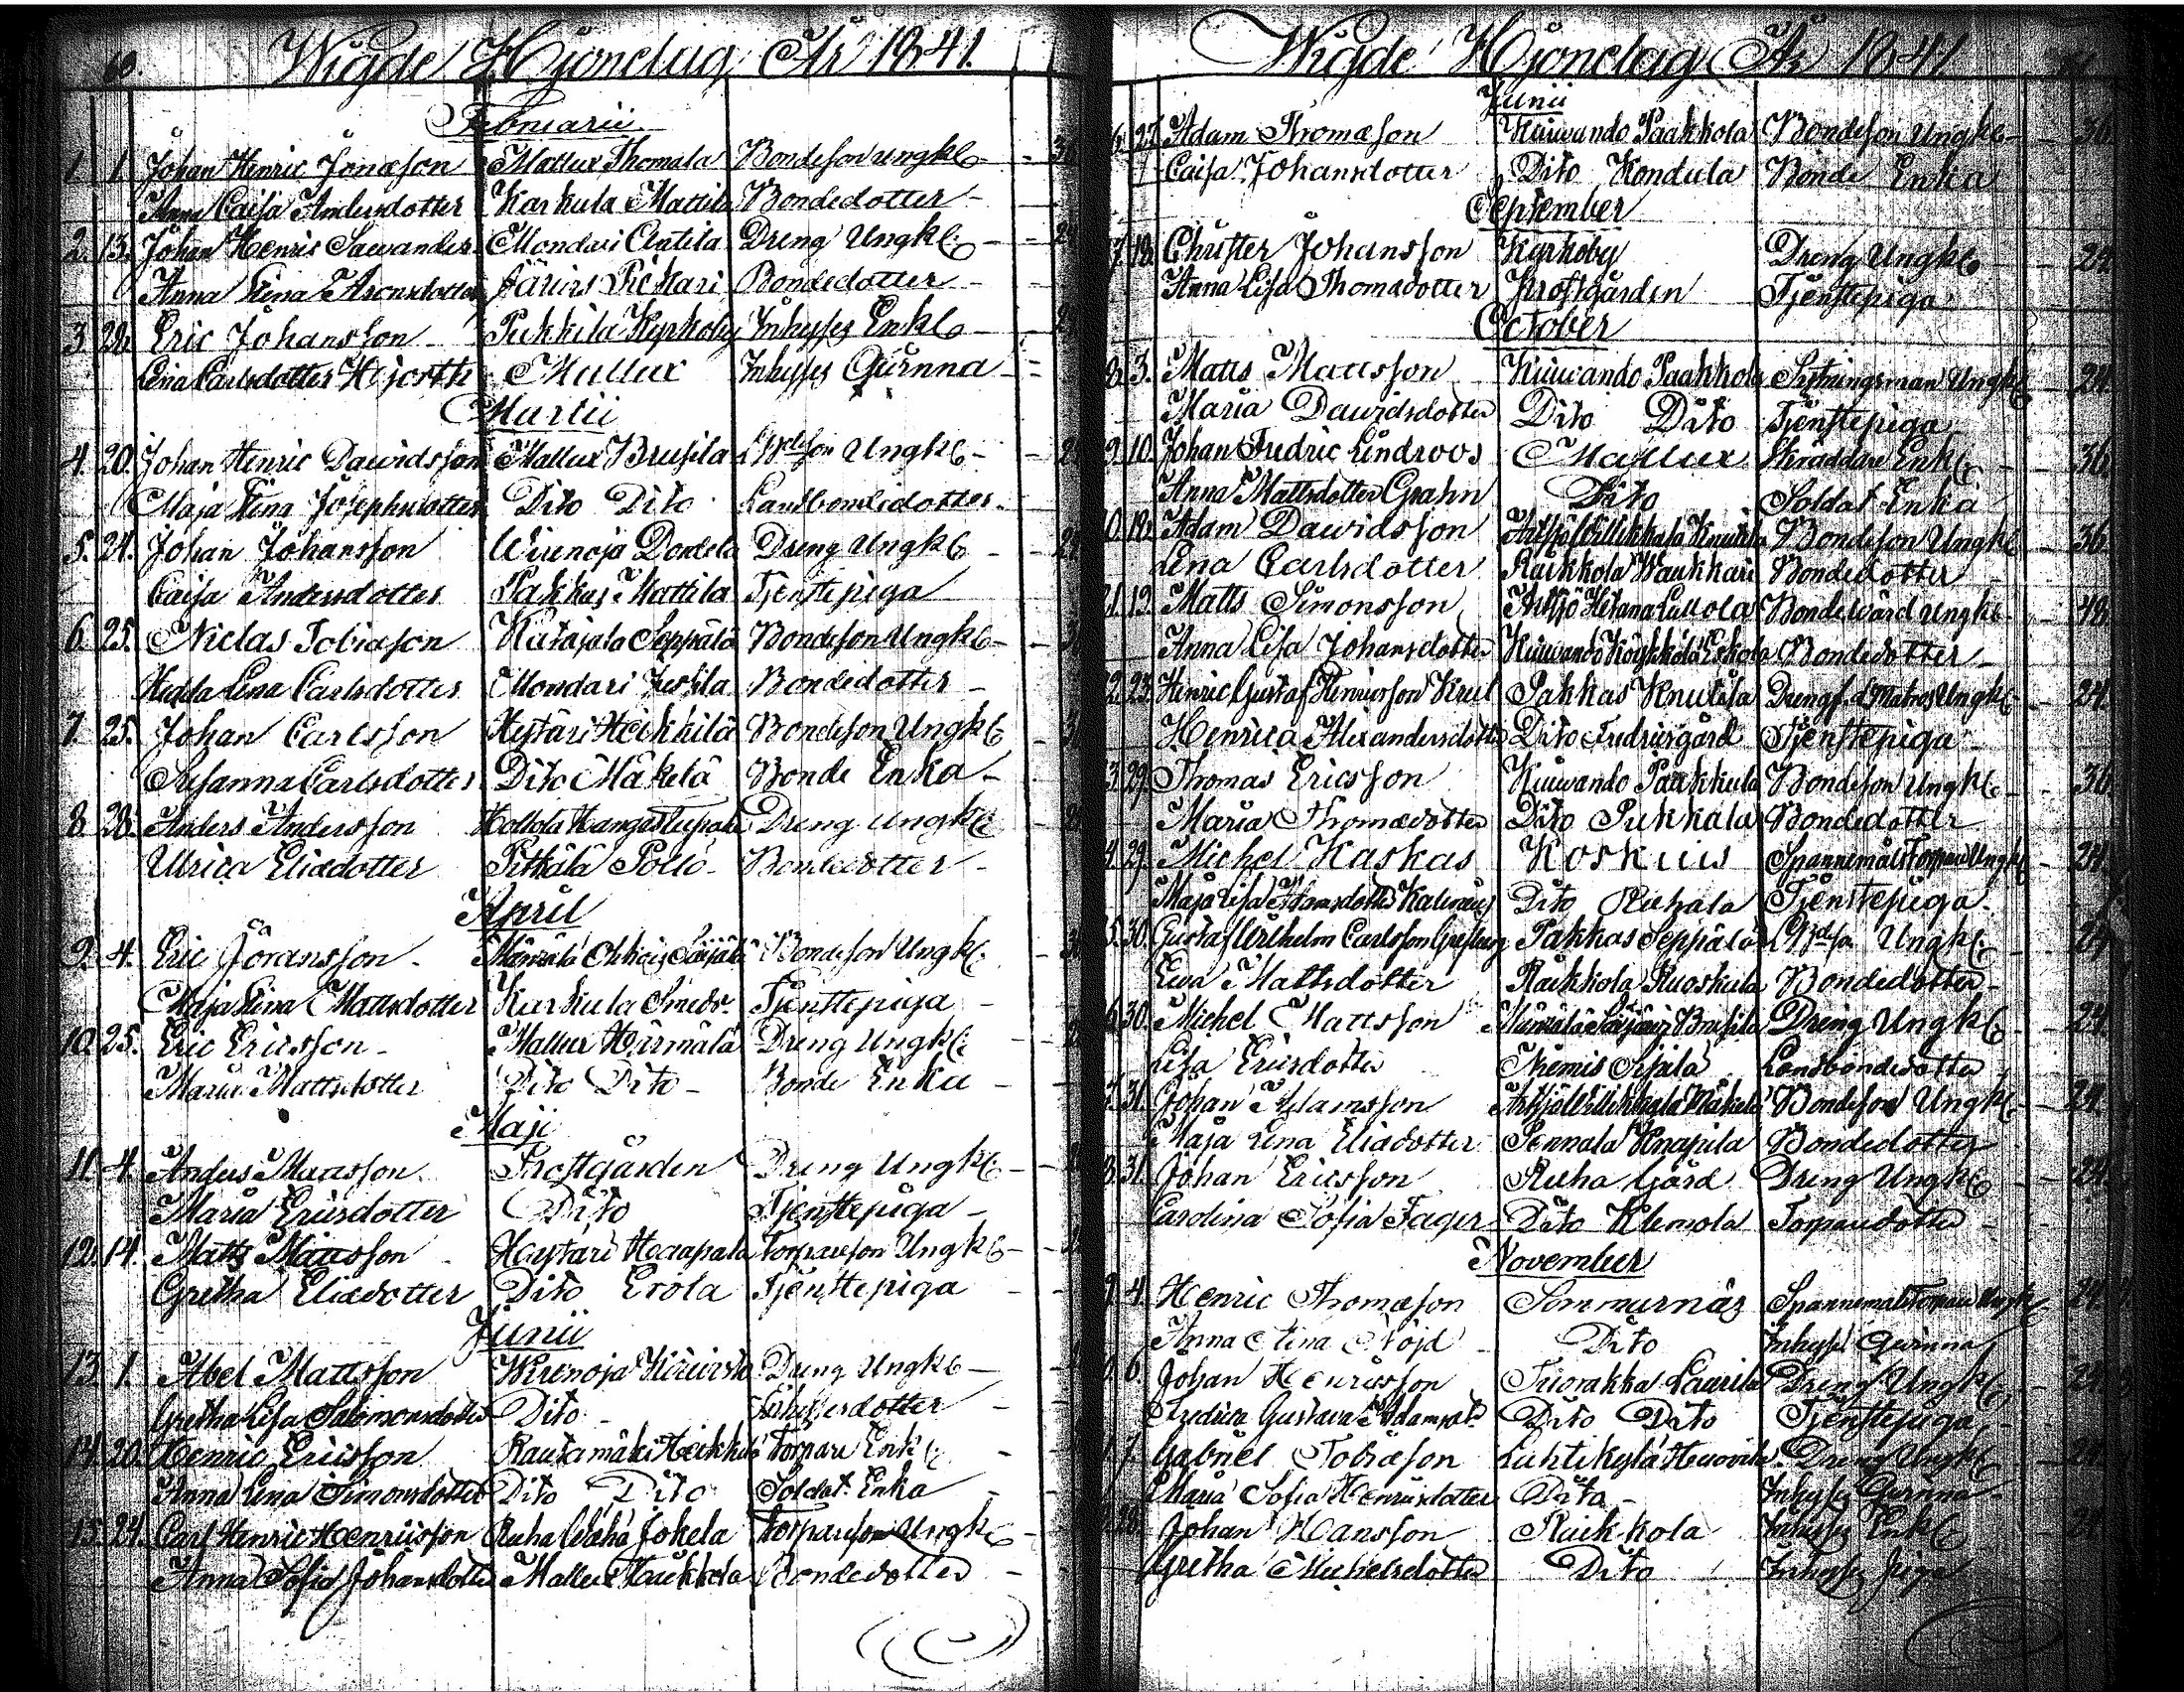 60. Wigde Hjonelag År 1841.
Februarii
1. 1. Johan Henric Jonæson Mallux Thomala Bondeson Ungkl
Anna Caisa Andersdotter Karkula Mattila Bondedotter
2. 13. Johan Henric Sawander Mondari Anttila Dreng Ungkl
Anna Stina Aronsdotter Järvis Pickari Bondedotter
3. 28. Eric Johansson Pukkila Kyrkoby Inhyses Enkl
Lena Carlsdotter Hjorth Mallux Inhyses Qvinna
Martii
4. 20. Johan Henric Dawidsson Mallux Brusila Ungkl
Maja Stina Josephsdotter Dito Dito Landbondedotter
5. 24. Johan Johansson Wirenoja Dondela Dreng Ungkl
Caisa Andersdotter Pakkas Mattila Tjenstepiga
6. 25. Niclas Tobiason Katajala Seppälä Bondeson Ungkl
Hedda Lena Carlsdotter Mondari Jussila Bondedotter
7. 25. Johan Carlsson Heytäri Heikkilä Bondeson Ungkl
Susanna Carlsdotter Dito Mäkelä Bonde Enka
8. 28. Anders Andersson Hollola Dreng Ungkl
Ulrica Eliædotter Pitkälä Bondedotter
April
9. 4. Eric Göransson Bondeson Ungkl
Maja Stina Mattsdotter Karkula Tjenstepiga
10. 25. Eric Ericsson Mallux Härmälä Dreng Ungkl
Maria Mattsdotter Dito Dito Bonde Enka
Maji
11. 4. Anders Mattsson Prostgården Dreng Ungkl
Maria Ericsdotter Dito Tjenstepiga
12. 14. Matts Mattsson Heytäri Haapala Torpareson Ungkl
Gretha Eliædotter Dito Erola Tjenstepiga
Junii
13. 1. Abel Mattsson Wirenoja Dreng Ungkl
Gretha Lisa Salomonsdotter Dito Inhysesdotter
14. 20. Henric Ericsson Rautamäki Heikkilä Torpare Enkl
Anna Lena Simonsdotter Dito Dito Soldat Enka
15. 24. Carl Henric Henricsson Ruha Jokela Torpareson Ungkl
Anna Sofia Johansdotter Mallux Bondedotter
Wigde Hjonelag År 1841
Junii
27. Adam Thomæson Kuiwando Paakkola Bondeson Ungkl 36.
Caisa Johansdotter Dito Kondula Bonde Enka
September
18. Christer Johansson Kyrkoby Dreng Ungkl 24.
Anna Lisa Thomædotter Prostgården Tjenstepiga
October
3. Matts Mattsson Kuiwando Paakkola Sytningsman Ungkl 24.
Maria Dawidsdotter Dito Dito Tjenstepiga
10. Johan Fredric Lindroos Mallux Skräddare Enkl 36.
Anna Mattsdotter Grahn Dito Soldat Enka
18. Adam Dawidsson Bondeson Ungkl 36.
Lena Carlsdotter Raikkola Waukkari Bondedotter
19. Matts Simonsson Artsjö Hietana Lallola Bondewärd Ungkl 48.
Anna Lisa Johansdotter Kuiwando Köykkölä Eskola Bondedotter
23. Henric Gustaf Henricsson Krul Pakkas Knutila Dreng f.d. Matros Ungkl 24.
Henrica Alexandersdotter Dito Fredricsgård Tjenstepiga
29. Thomas Ericsson Kuiwando Paakkola Bondeson Ungkl 36.
Maria Thomædotter Dito Pukkala Bondedotter
29. Michel Kaskas Koskius Spannemåls Torpare Ungkl 24.
Maja Lisa Adamsdotter Dito Ruhala Tjenstepiga
30. Gustaf Wilhelm Carlsson Pakkas Seppälä Ungkl 24.
Ewa Mattsdotter Raikkola Ruoskula Bondedotter
30. Michel Mattsson Brusila Dreng Ungkl 24.
Lisa Ericsdotter Niemis Sipilä Landbondedotter
31. Johan Adamsson Artsjö Willikkala Mäkelä Bondeson Ungkl 24.
Maja Lena Eliædotter Sennala Knapila Bondedotter
31. Johan Ericsson Ruha Gård Dreng Ungkl 24.
Carolina Sofia Fager Dito Klemola Torparedotter
November
4. Henric Thomæson Sommarnäs Spannemåls Torpare Ungkl 24.
Anna Stina Höjd Dito Inhyses Qvinna
6. Johan Henricsson Tuorakka Laurila Dreng Ungkl 24.
Fredrica Gustava Adamsdr Dito Dito Tjenstepiga
7. Gabriel Tobiæson Luhtikylä Dreng Ungkl 24.
Maria Sofia Henricsdotter Dito Inhyses Qvinna
28. Johan Hansson Raikkola Inhyses Enkl
Gretha Michelsdotter Dito Inhyses piga